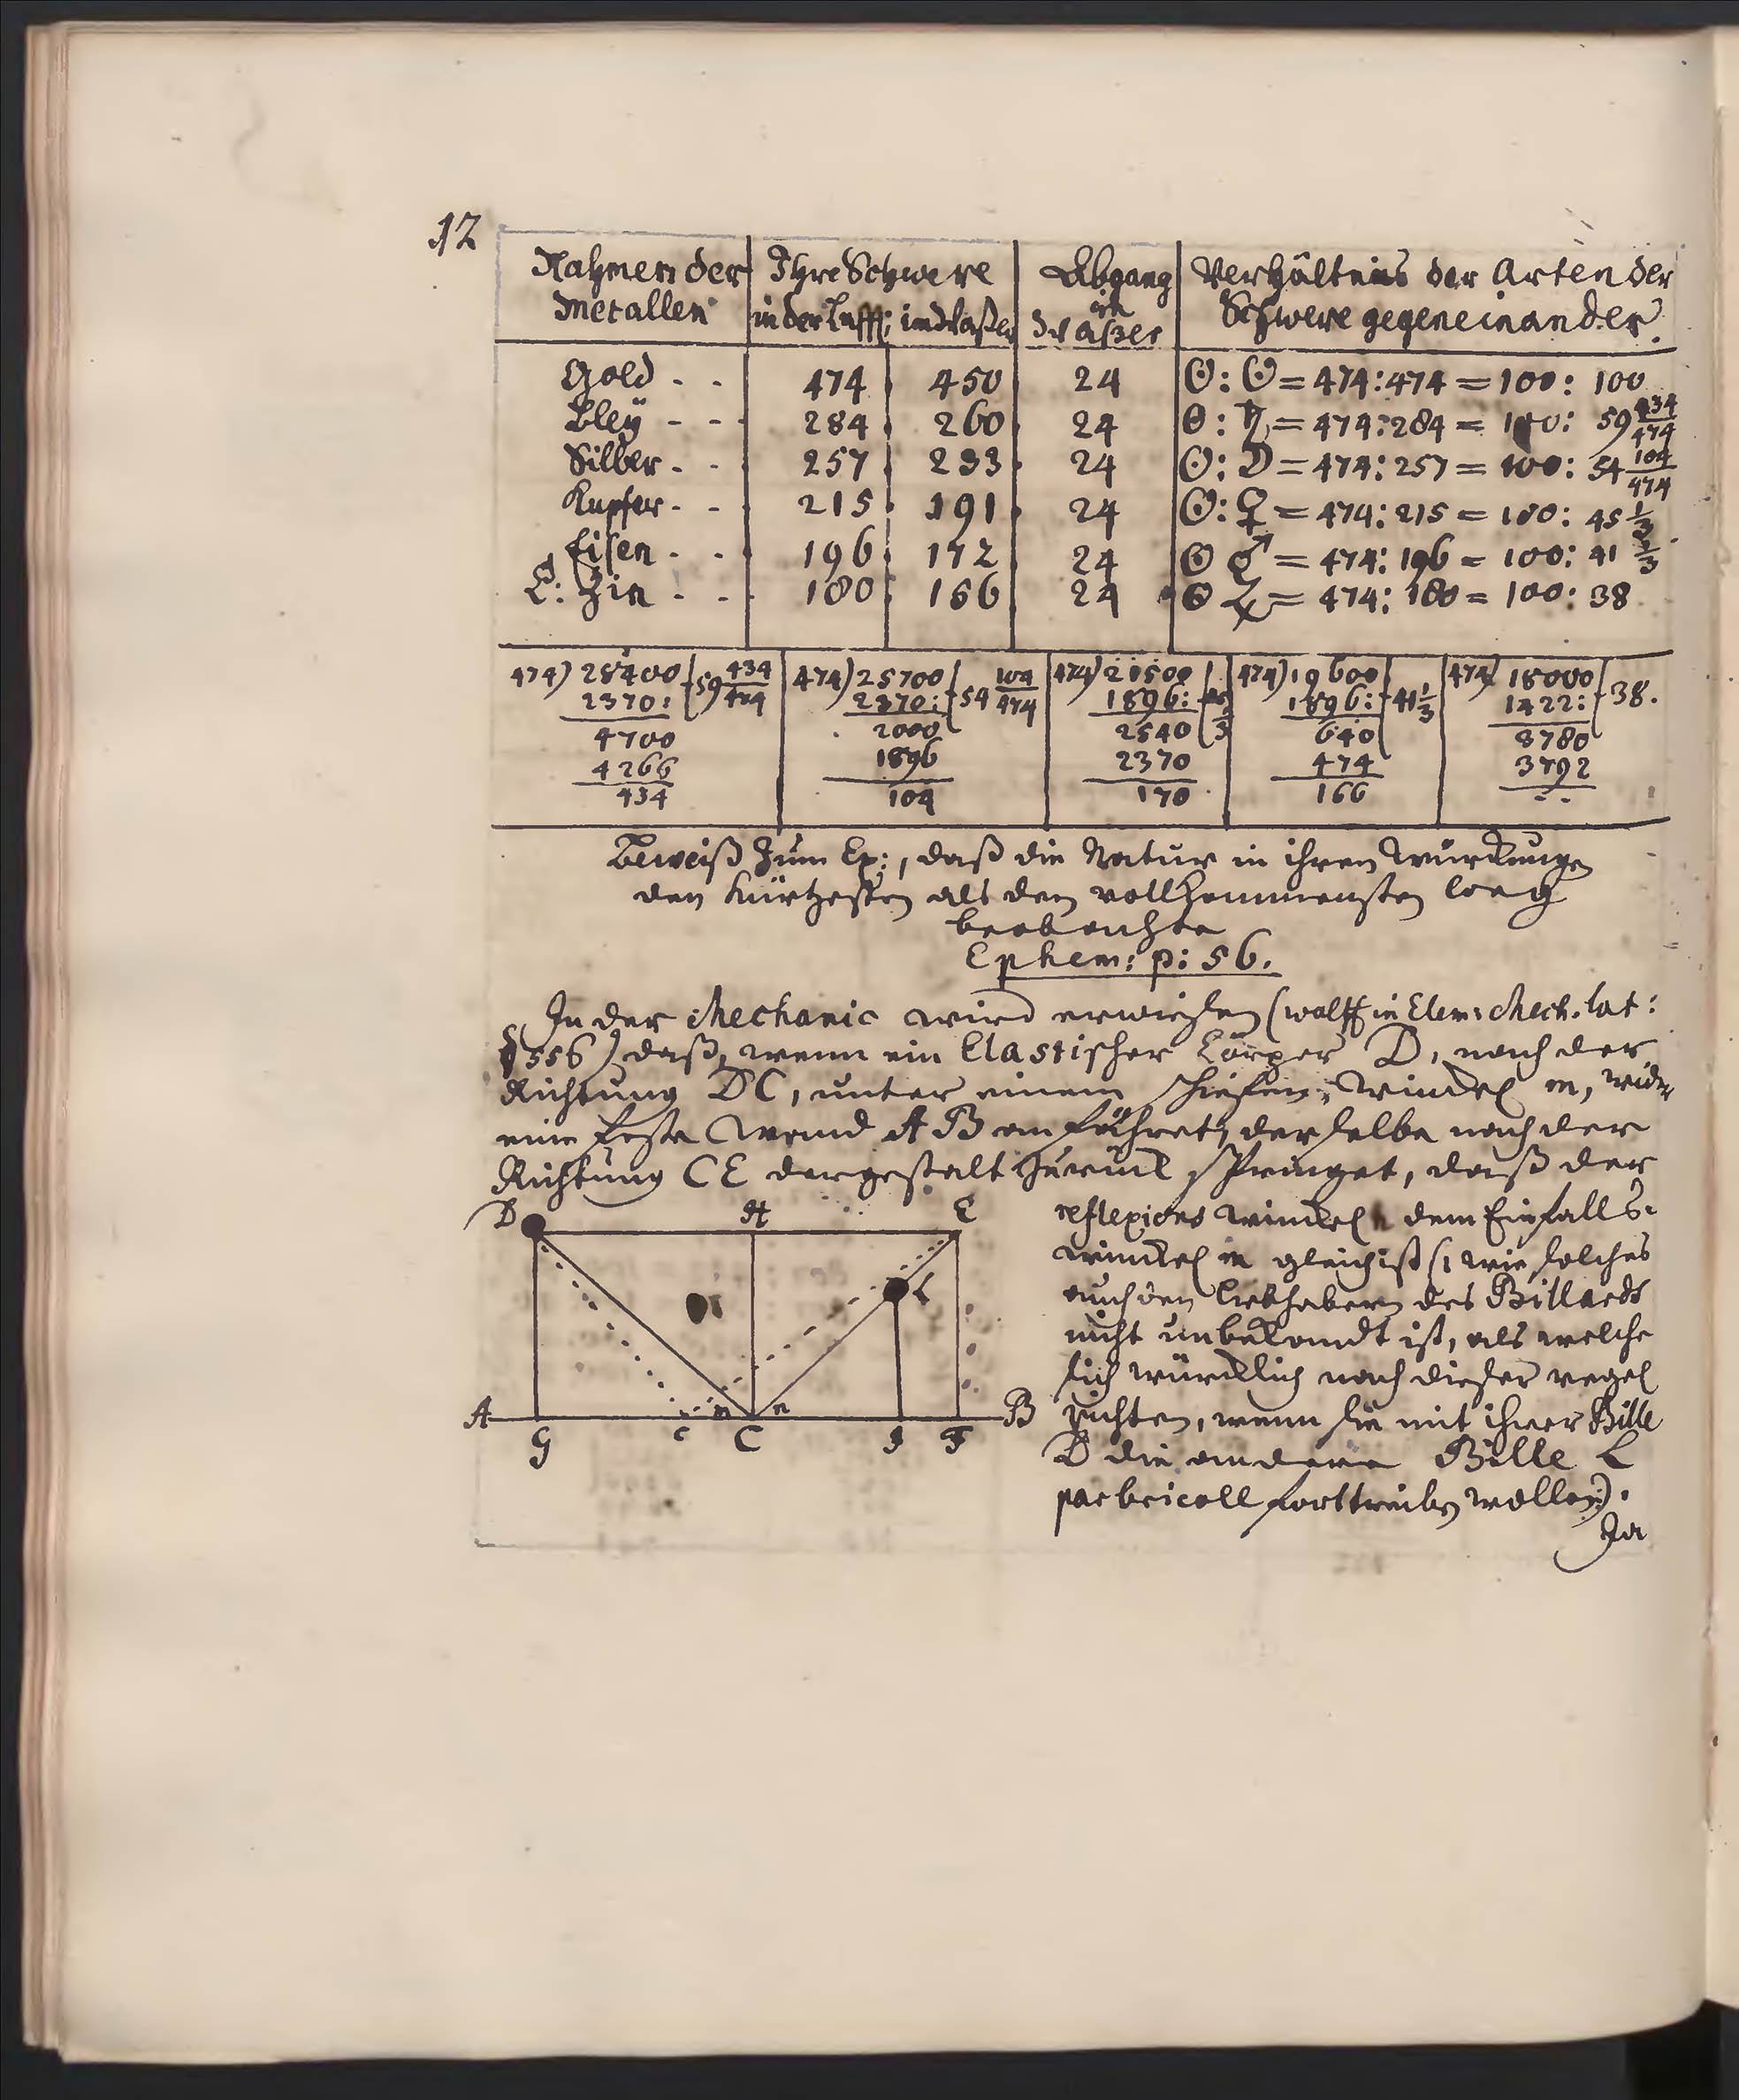 12
Nahmen der | Ihre Schwere | Abgang | Verhältnis der Arten der
Metallen | in der Lufft: im Waßer | im Waßer | Schwere gegeneinander.
Gold - - 474 450 24 ☉:☉ = 474:474 = 100: 100
Bley - - - 284 260 24 ☉:♄ = 474:284 = 100: 59 434/474
Silber - - 257 233 24 ☉:☽ = 474:257 = 100: 54 104/474
Kupfer - - 215 191 24 ☉:♀ = 474:215 = 100: 45 1/3
Eisen - - 196 172 24 ☉ ♂ = 474:196 = 100: 41 1/3
E: Zin - - 180 156 24 ☉ ♃ = 474:180 = 100: 38
474) 28400 | 59 434/474 474) 25700 | 54 104/474 474) 21500 | 45 1/3 474) 19600 | 41 1/3 474) 18000 | 38.
2370: 2370: 1896: 1896: 1422:
4700 2000 2540 640 3780
4266 1896 2370 474 3792
434 104 170 166 - -
Beweiß zum Ex:, daß die Natur in ihren Würckungen
den kürtzesten als den vollkommensten weg
beobachte
Ephem: p: 56.
In der Mechanic wird erwiesen (Wolff in Elem: Mech. lat:
§ 556) daß, wenn ein Elastischer Körper D, nach der
Richtung DC, unter einem schiefen Winckel m, wider
eine feste Wand AB anfähret, derselbe nach der
Richtung CE dergestalt zurück springet, daß der
reflexions Winckel n dem Einfalls-
winckel m gleich ist (wie solches
auch den Liebhabern des Billards
nicht unbekandt ist, als welche
sich würcklich nach dieser regel
richten, wenn sie mit ihrer Bille
D die andere Bille L
par bricoll forttreiben wollen).
Ja
D H E
L
A m n B
G c C I F